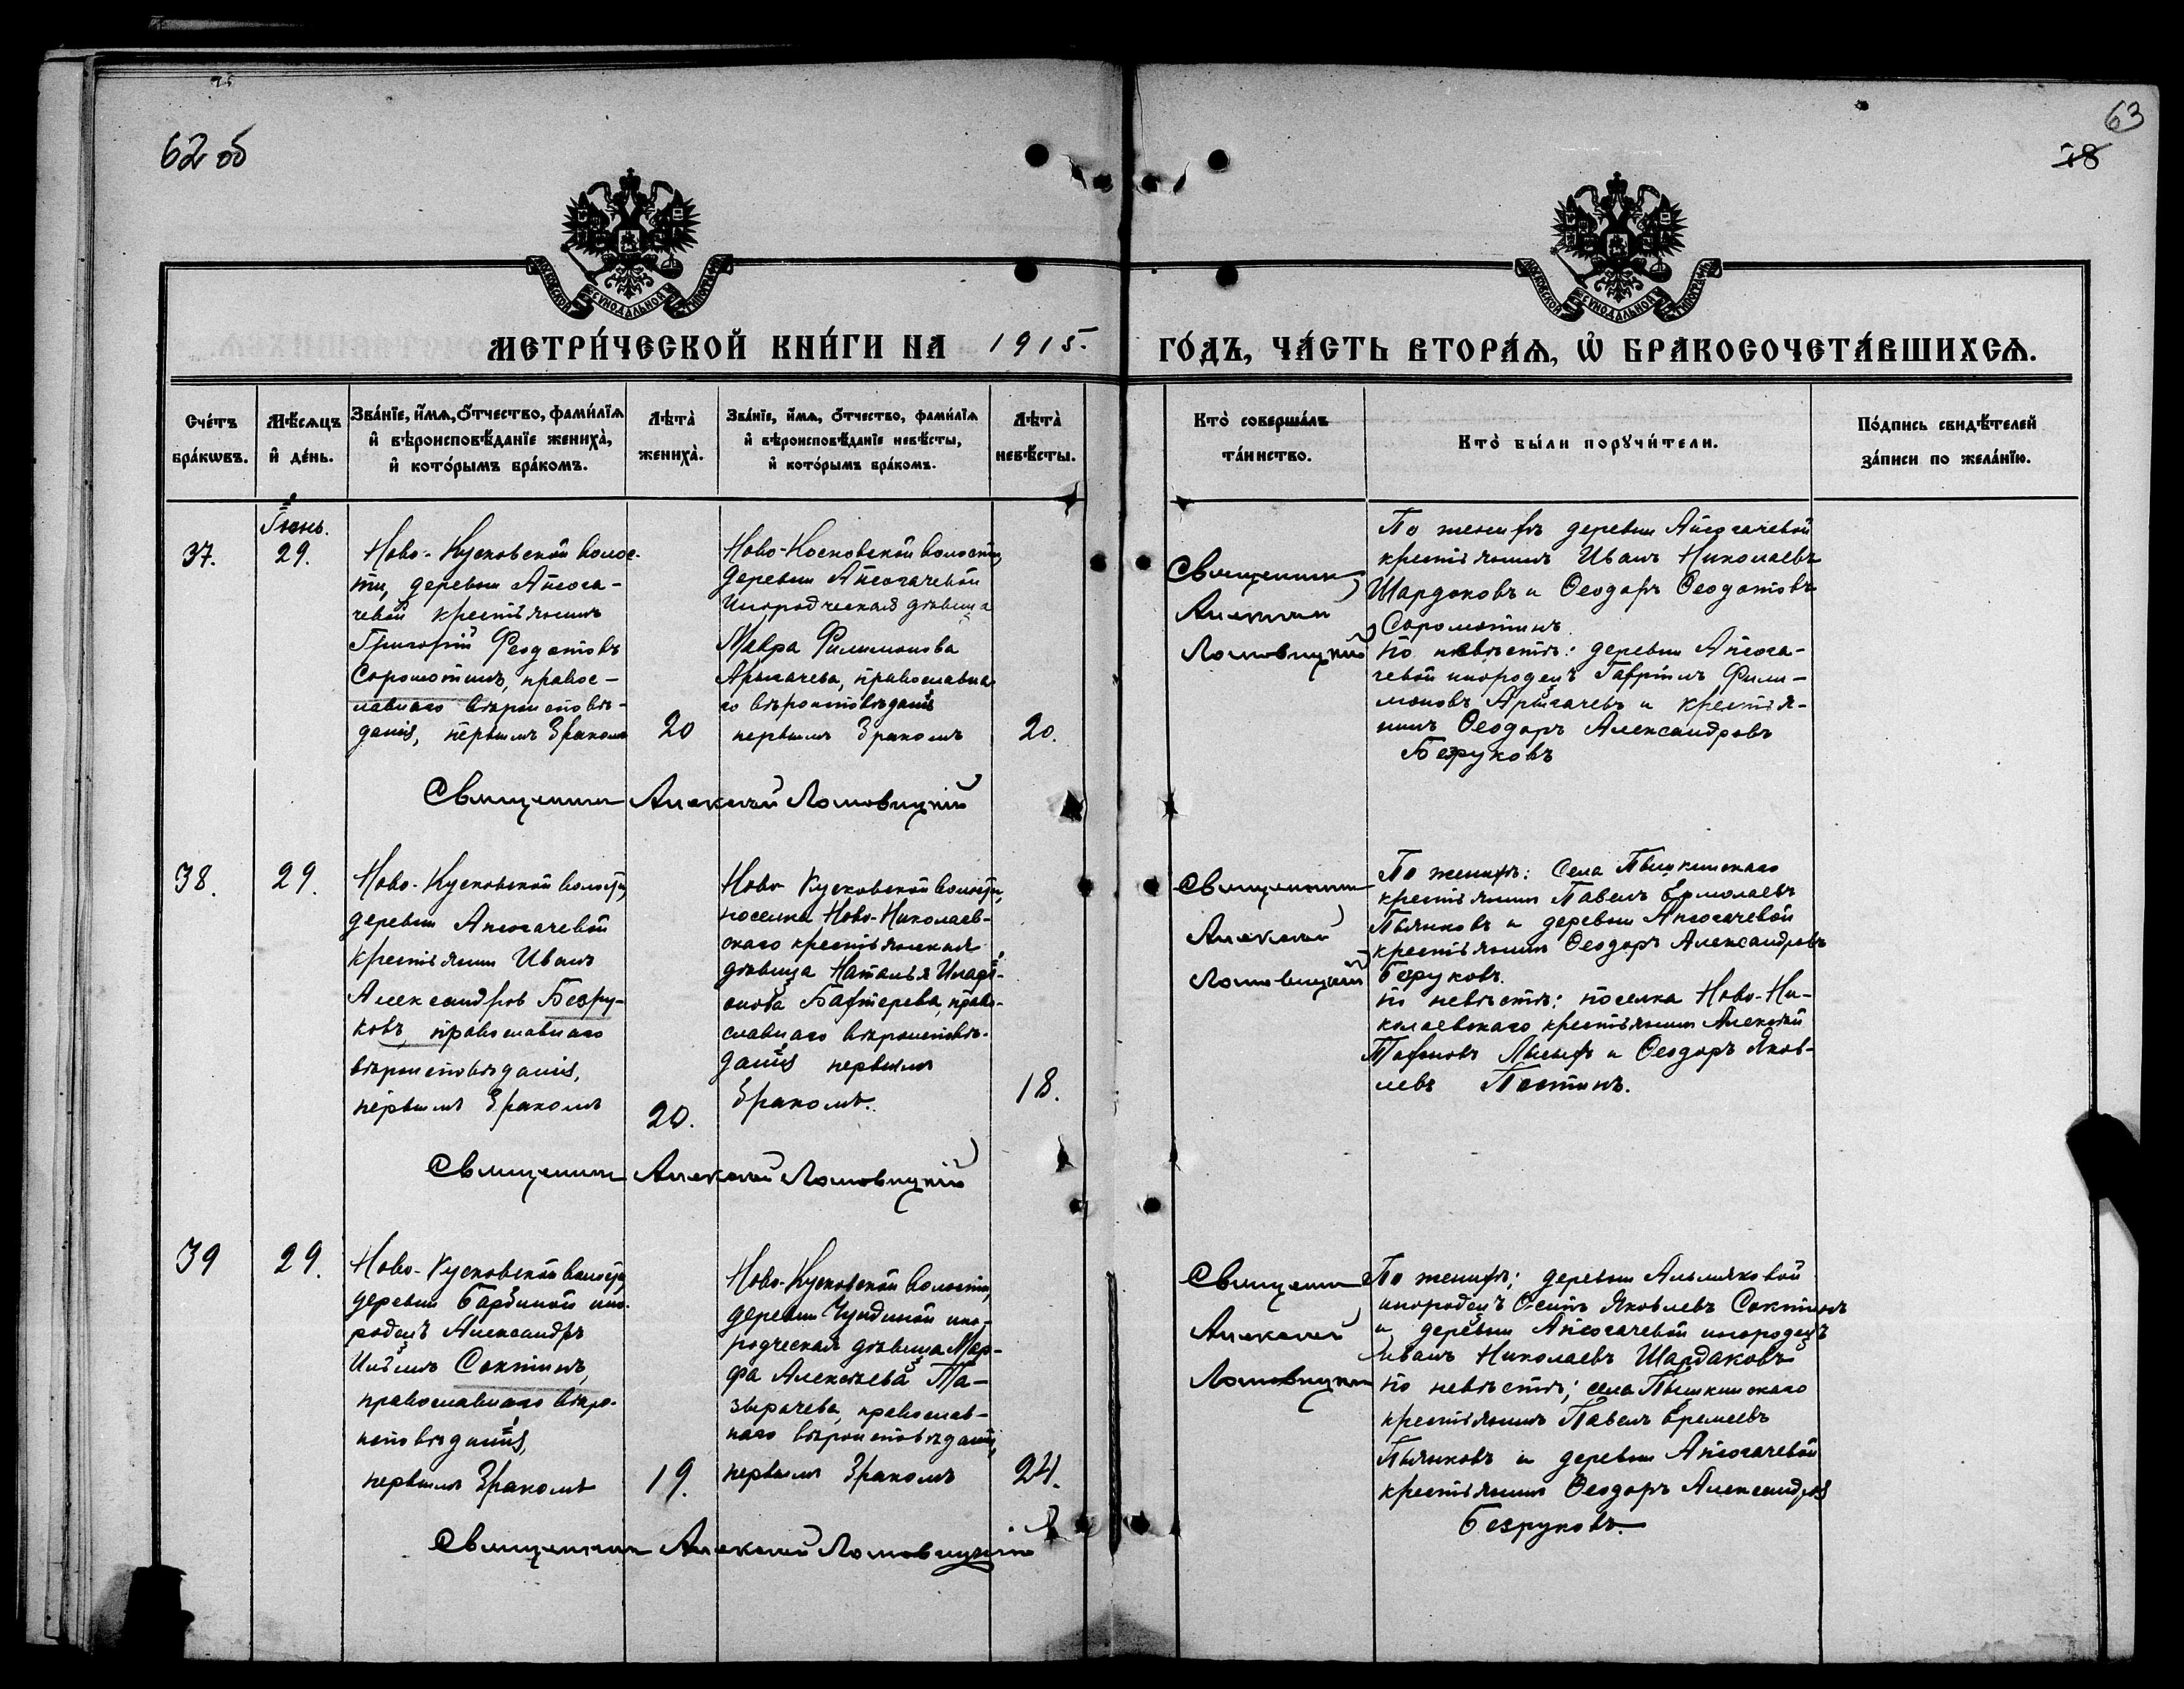 62 об
63
78
МОСКОВСКОЙ СѴНОДАЛЬНОЙ ТИПОГРАФІИ
МОСКОВСКОЙ СѴНОДАЛЬНОЙ ТИПОГРАФІИ
МЕТРИ́ЧЕСКОЙ КНИ́ГИ НА 1915 ГО́ДЪ, ЧА́СТЬ ВТОРА́Ѧ, Ѡ҆ БРАКОСОЧЕТА́ВШИХСѦ.
Сче́тъ
бра́кѡвъ.
Мѣ́сѧцъ
и҆ де́нь.
Зва́нїе, и҆́мѧ, о҆́тчество, фами́лїѧ
и҆ вѣроисповѣ́данїе жениха̀,
и҆ кото́рымъ бра́комъ.
Лѣта̀
жениха̀.
Зва́нїе, и҆́мѧ, о҆́тчество, фами́лїѧ
и҆ вѣроисповѣ́данїе невѣ́сты,
и҆ кото́рымъ бра́комъ.
Лѣта̀
невѣ́сты.
Кто̀ соверша́лъ
та́инство.
Кто̀ бы́ли порꙋчи́тели.
По́дпись свидѣ́телей
за́писи по жела́нїю.
37.
Іюнь.
29.
Ново-Кусковской волос-
ти, деревни Апсога-
чевой крестьянинъ
Григорій Феодотовъ
Соромотинъ, правос-
лавнаго вѣроисповѣ-
данія, первымъ бракомъ
20
Ново-Косковской волости,
деревни Апсогачевой
инородческая дѣвица
Мавра Филимонова
Арыгачева, православна
го вѣроисповѣданія
первымъ бракомъ
20.
Священникъ
Алексій
Ломовицкій
По женихѣ деревни Апсогачевой
крестьянинъ Иванъ Николаевъ
Шардоковъ и Ѳеодоръ Ѳеодотовъ
Соромотинъ.
По невѣстѣ: деревни Апсога-
чевой инородецъ Гавріилъ Фили-
моновъ Арыгачевъ и крестья-
нинъ Ѳеодоръ Александровъ
Безруковъ
Священникъ Алексій Ломовицкій
38.
29.
Ново-Кусковской волости,
деревни Апсогачевой
крестьянинъ Иванъ
Александровъ Безру-
ковъ, православнаго
вѣроисповѣданія,
первымъ бракомъ
20.
Ново Кусковской волости,
поселка Ново-Николаев-
скаго крестьянская
дѣвица Наталья
православнаго вѣроисповѣ-
данія первымъ
бракомъ.
18.
Священникъ
Алексій
Ломовицкій
По женихѣ: Села Пышкинскаго
крестьянинъ Павелъ Ермолаевъ
Пьянковъ и деревни Апсогачевой
крестьянинъ Ѳеодоръ Александровъ
Безруковъ.
По невѣстѣ: поселка Ново-Ни-
колаевскаго крестьянинъ Алексѣй
и Ѳеодоръ Яков-
левъ
Священникъ Алексій Ломовицкій
39
29.
Ново-Кусковской волости
деревни Барбиной ино-
родецъ Александръ
Ильинъ Соктинъ,
православнаго вѣро-
исповѣданія,
первымъ бракомъ
19.
Ново-Кусковской волости,
деревни Чиндиной ино-
родческая дѣвица Мар-
фа Алексѣева Та-
зырачева, православ-
наго вѣроисповѣданія,
первымъ бракомъ
24.
Священникъ
Алексій
Ломовицкій
По женихѣ; деревни Альмяковой
инородецъ Осипъ Яковлевъ Соктинъ
и деревни Апсогачевой инородецъ
Иванъ Николаевъ Шардаковъ
по невѣстѣ; села Пышкинскаго
крестьянинъ Павелъ Еремеевъ
Пьянковъ и деревни Апсогачевой
крестьянинъ Ѳеодоръ Александровъ
Безруковъ.
Священникъ Алексій Ломовицкій